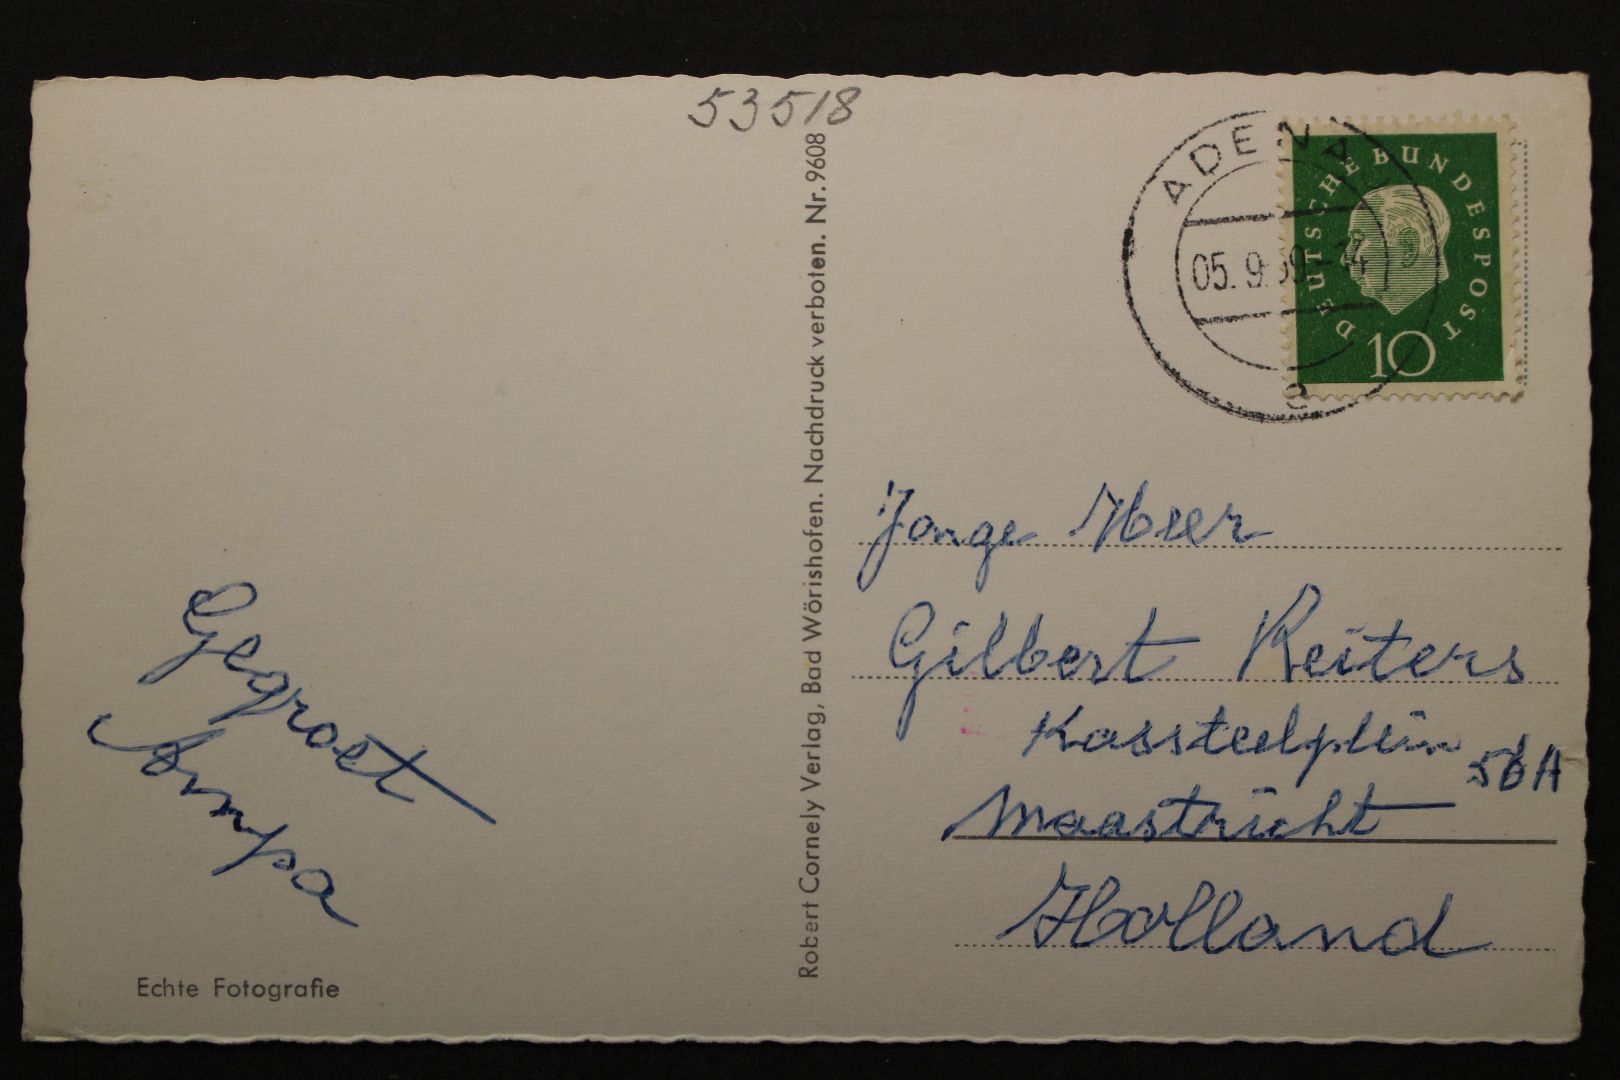 53518
Robert Cornely Verlag, Bad Wörishofen. Nachdruck verboten. Nr. 9608
ADENAU
05. 9. 59 - 14
e
DEUTSCHE BUNDESPOST
10
Jonge Heer
Gilbert Reiters
Kassteelplein 56A
Maastricht
Holland
Gegroet
Ampa
Echte Fotografie